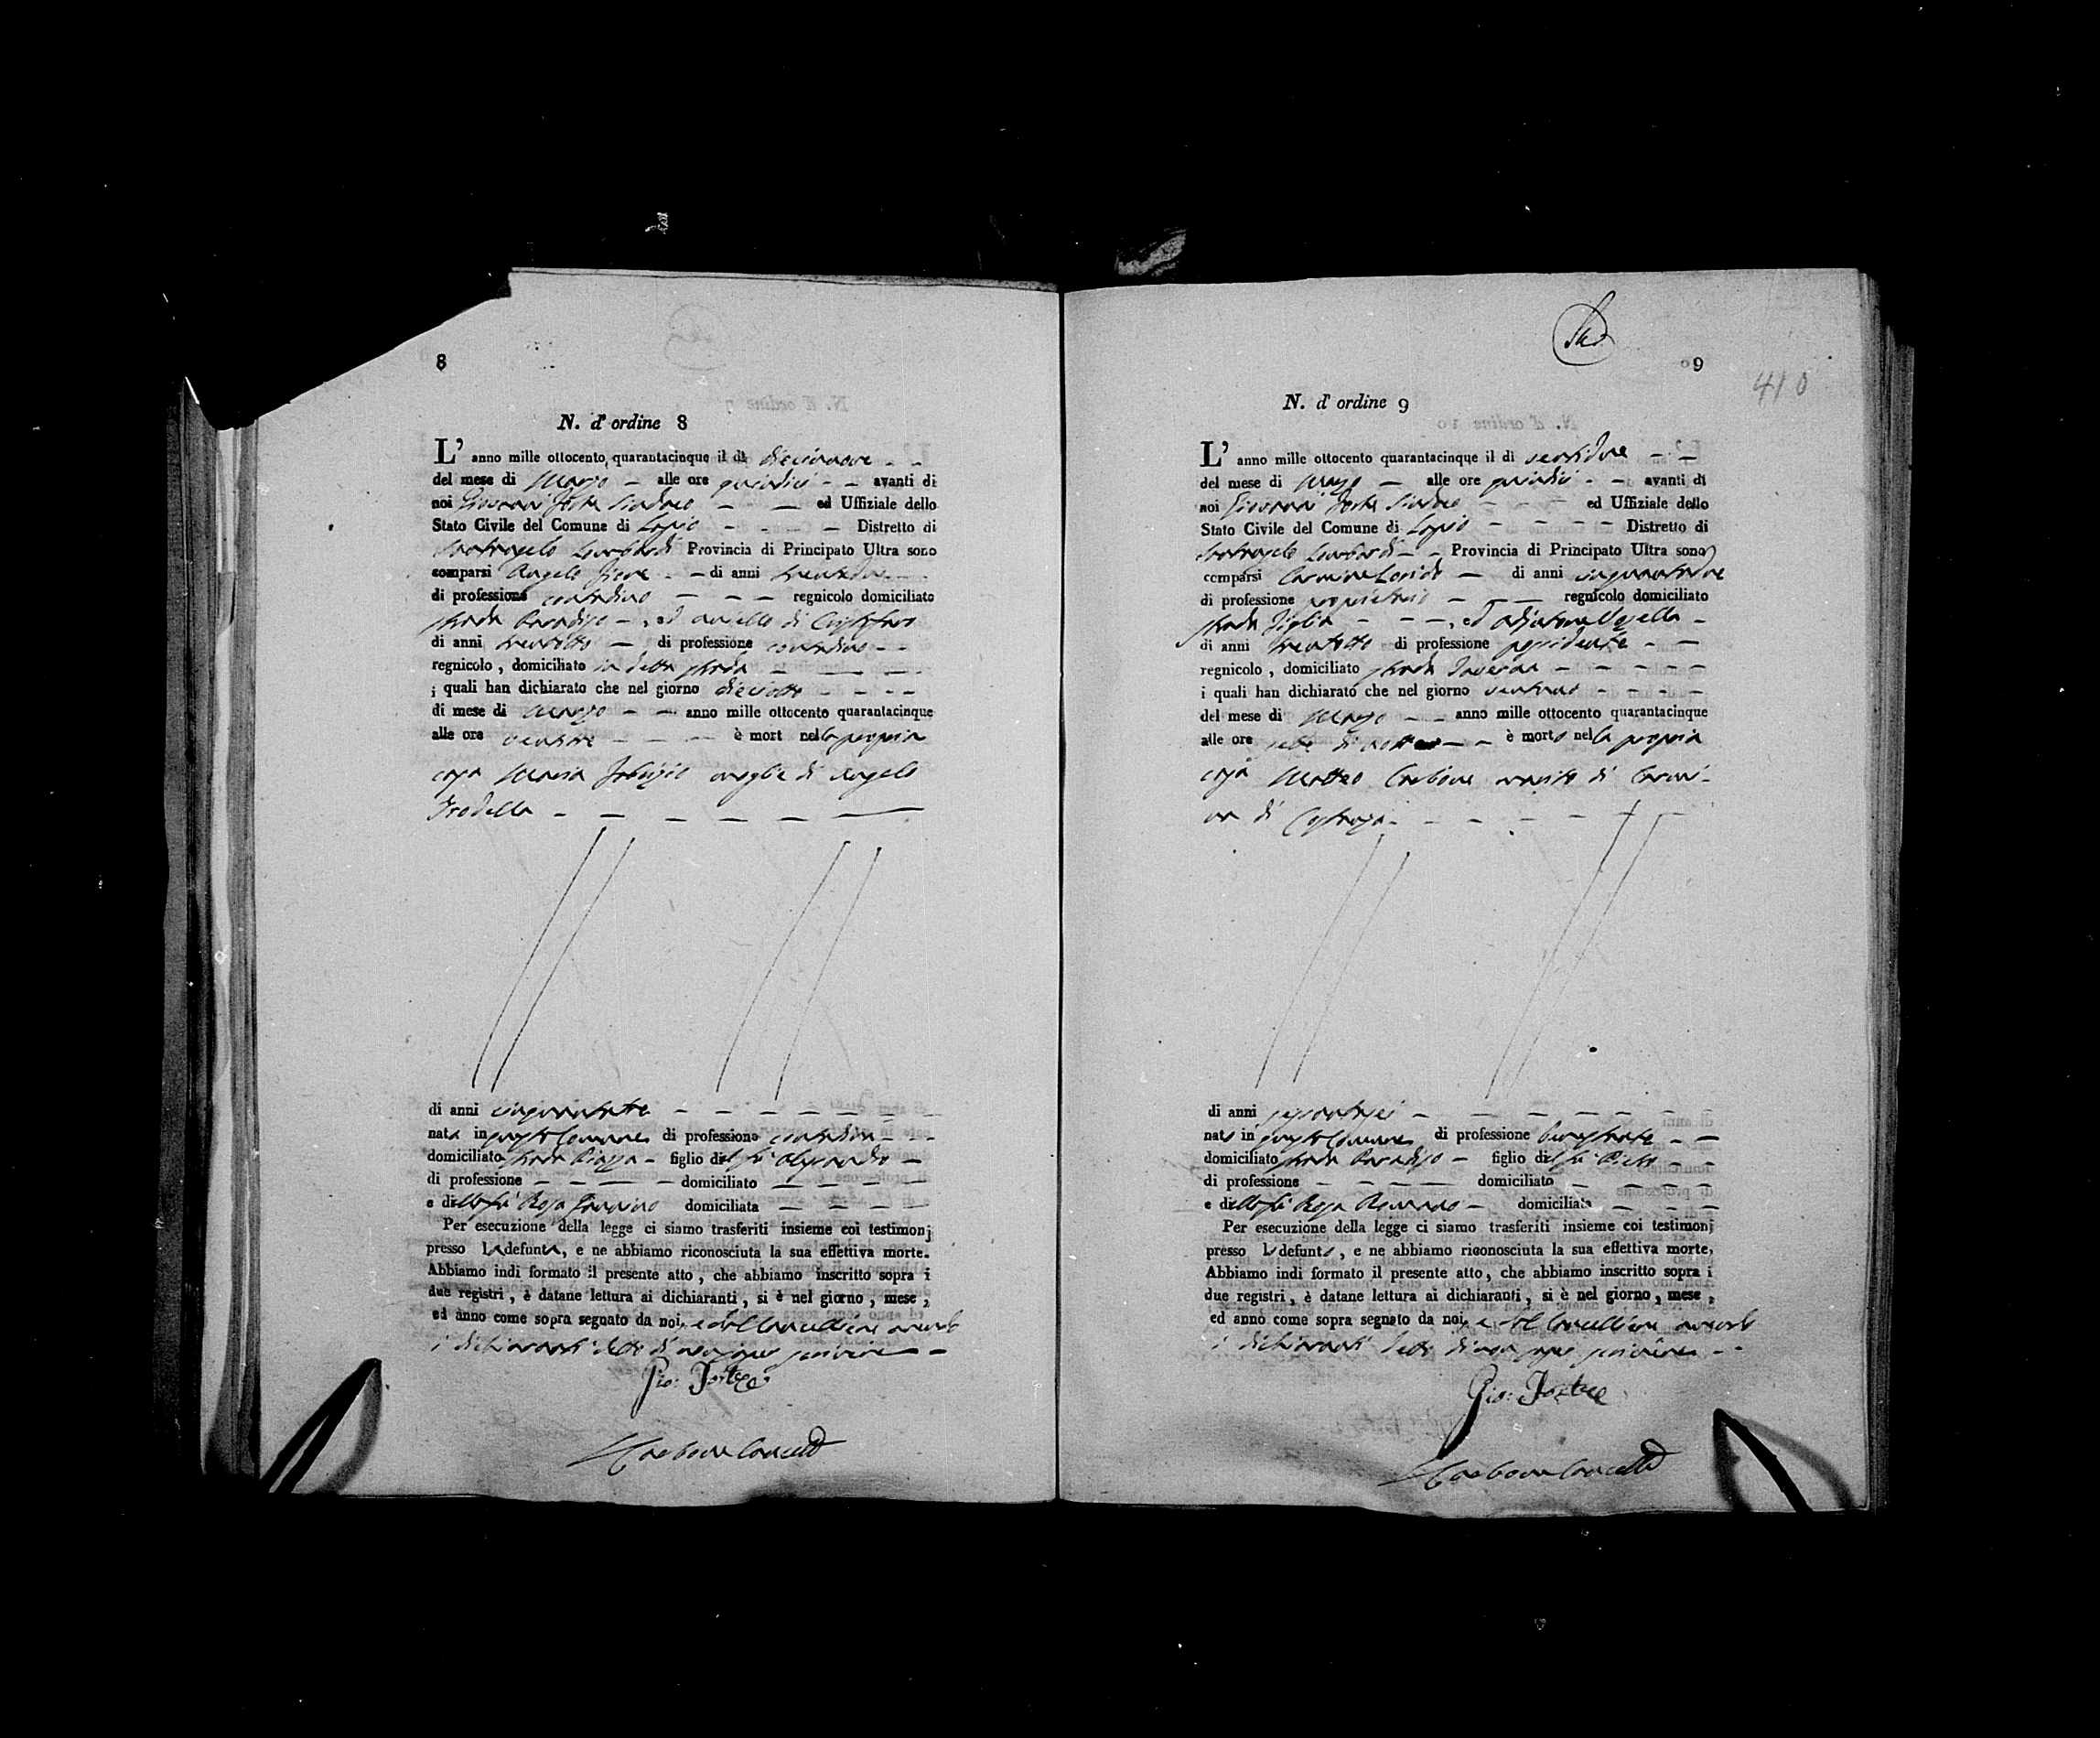 8
N. d' ordine 8
L' anno mille ottocento quarantacinque il dì diecinnove
del mese di Marzo alle ore quindici avanti di
noi Giovanni Forte Sindaco ed Uffiziale dello
Stato Civile del Comune di Lapio Distretto di
Santangelo Lombardi Provincia di Principato Ultra sono
comparsi Angelo di anni trentadue
di professione contadino regnicolo domiciliato
strada Paradiso, ed Aniello di
di anni trentotto di professione contadino
regnicolo, domiciliato in detta strada
i quali han dichiarato che nel giorno dieciotto
di mese di Marzo anno mille ottocento quarantacinque
alle ore ventitre è mort nella propria
casa Maria Fabrizio moglie di Angelo
di anni
nata in questo Comune di professione contadina
domiciliato strada Piazza figlio del fù Alesandro
di professione domiciliato
e della fù Rosa domiciliata
Per esecuzione della legge ci siamo trasferiti insieme coi testimonj
presso la defunta, e ne abbiamo riconosciuta la sua effettiva morte.
Abbiamo indi formato il presente atto, che abbiamo inscritto sopra i
due registri, è datane lettura ai dichiaranti, si è nel giorno, mese,
ed anno come sopra segnato da noi, e dal Cancelliere avendo
i dichiaranti detto di non saper scrivere
Gio: Forte
Carbone Cancell
9
410
N. d' ordine 9
L' anno mille ottocento quarantacinque il dì ventidue
del mese di Marzo alle ore quindici avanti di
noi Giovanni Forte Sindaco ed Uffiziale dello
Stato Civile del Comune di Lapio Distretto di
Santangelo Lombardi Provincia di Principato Ultra sono
comparsi Carmine di anni cinquantadue
di professione proprietario regnicolo domiciliato
strada, ed
di anni trentotto di professione possidente
regnicolo, domiciliato strada Taverna
i quali han dichiarato che nel giorno ventuno
del mese di Marzo anno mille ottocento quarantacinque
alle ore sette di notte è morto nella propria
casa Matteo Carbone marito di Carmi-
na di
di anni sessantasei
nato in questo Comune di professione
domiciliato strada Paradiso figlio del fù
di professione domiciliato
e della fù Rosa Romano domiciliata
Per esecuzione della legge ci siamo trasferiti insieme coi testimonj
presso lo defunto, e ne abbiamo riconosciuta la sua effettiva morte,
Abbiamo indi formato il presente atto, che abbiamo inscritto sopra i
due registri, è datane lettura ai dichiaranti, si è nel giorno, mese,
ed anno come sopra segnato da noi, e dal Cancelliere avendo
i dichiaranti detto di non saper scrivere
Gio: Forte
Carbone Cancell